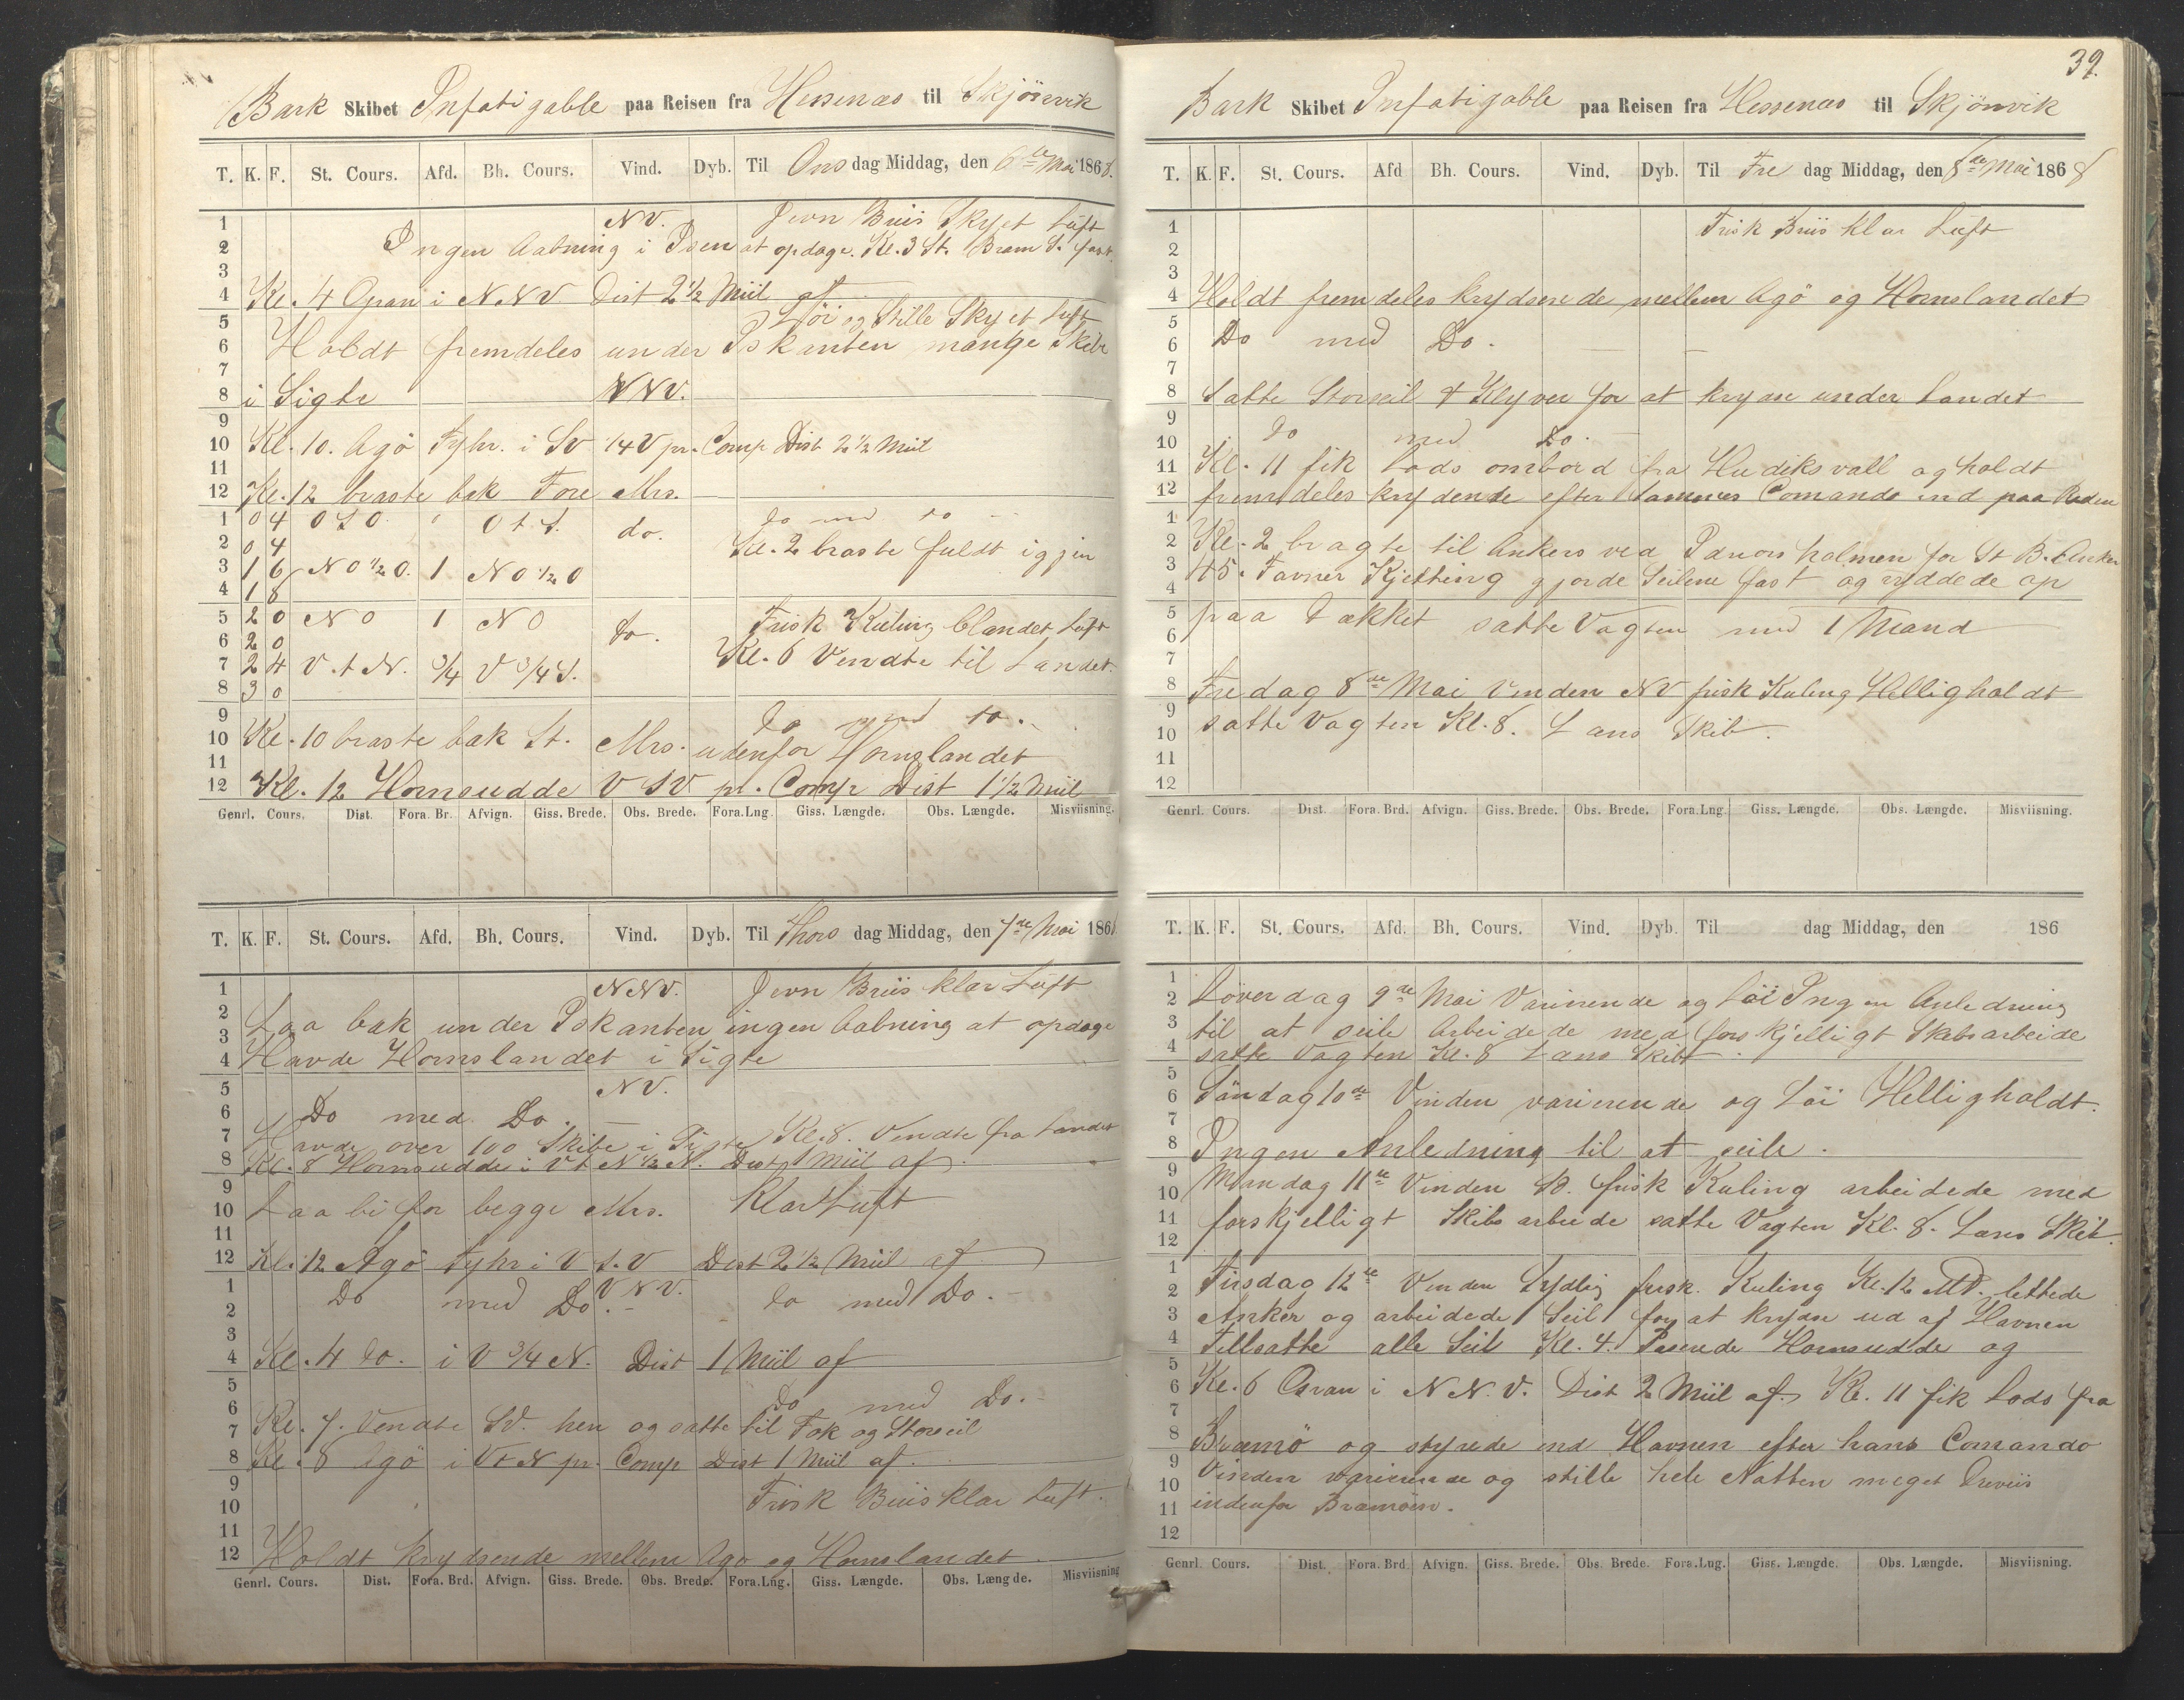 Bark Skibet Infatigable paa Reisen fra Hessenæs til Skjönvik
T. K. F. St. Cours. Afd. Bh. Cours. Vind. Dyb. Til Ons dag Middag, den 6te Mai 1868.
1 NV. Jevn Briis Skyet Luft
2 Ingen Aabning i Isen at opdage. Kl. 3 St. Bram S. fast.
3
4 Kl. 4 i NNV Dist 2 1/2 Miil af
5 Löi og Stille Skyet Luft
6 Holdt fremdeles under Iskanten mange Skibe
7
8 i Sigte NNV.
9
10 Kl. 10. Agö Fyhr. i SV 1/4 V pr. Comp Dist 2 1/2 Miil
11
12 Kl. 12 braste bak Fore Mrs.
1 0 4 O S O. O t. S. do. do med do
2 0 4 Kl. 2 braste fuldt igjen
3 1 6 N O 1/2 O. 1 N O 1/2 O
4 1 8
5 2 0 N O 1 N O do. Frisk Kuling blandet Luft
6 2 0 Kl. 6 Vendte til Landet.
7 2 4 V. t N. 3/4 V 3/4 S.
8 3 0
9 do med do.
10 Kl. 10 braste bak St. Mrs. udenfor Hornslandet
11
12 Kl. 12 Hornsudde V SV pr. Comp Dist 1 1/2 Miil
Genrl. Cours. Dist. Fora. Br. Afvign. Giss. Brede. Obs. Brede. Fora. Lng. Giss. Længde. Obs. Længde. Misviisning.
T. K. F. St. Cours. Afd. Bh. Cours. Vind. Dyb. Til Thors dag Middag, den 7de Mai 186
1 NNV. Jevn Briis klar Luft
2 Laa bak under Iskanten ingen Aabning at opdage
3
4 Havde Hornslandet i Sigte
5 NV.
6 Do med Do.
7 Havde over 100 Skibe i Sigte Kl. 8. Vendte fra Landet
8 Kl. 8 Hornsudde i V t N 1/2 N. Dist 1 Miil af.
9
10 Laa bi for begge Mrs. Klar Luft
11
12 Kl. 12 Agö Fyhr i V S. V Dist 2 1/2 Miil af
1 VNV.
2 Do med Do. do med Do.
3
4 Kl. 4 do. i V 3/4 N. Dist 1 Miil af
5 Do med Do.
6
7 Kl. 7. Vendte SV. hen og satte til Fok og Storseil
8 Kl. 8 Agö i Vt N pr. Comp Dist 1 Miil af.
9 Frisk Briis klar Luft.
10
11
12 Holdt krydsende mellem Agö og Hornslandet.
Genrl. Cours. Dist. Fora. Brd. Afvign. Giss. Brede. Obs. Brede. Fora. Lng. Giss. Længde. Obs. Længde. Misviisning
39.
Bark Skibet Infatigable paa Reisen fra Hessenæs til Skjönvik
T. K. F. St. Cours. Afd Bh. Cours. Vind. Dyb. Til Fre dag Middag, den 8de Mai 1868
1 Frisk Briis klar Luft
2
3
4 Holdt fremdeles krydsende mellem Agö og Hornslandet
5
6 Do med Do.
7
8 Satte Storseil & Klyver for at krydse under Landet
9
10 Do med Do.
11 Kl. 11 fik Lods ombord fra Hudiksvall og holdt
12 fremdeles krydende efter sammes Comando ind paa Reden
1
2 Kl. 2 bragte til Ankers ved holmen for St B. Anker
3 45. Favner Kjetting gjorde Seilene fast og ryddede op
4
5 paa Dækket satte Vagten med 1 Mand
6
7
8 Fredag 8de Mai Vinden NV frisk Kuling Helligholdt
9 satte Vagten Kl. 8. Læns Skib.
10
11
12
Genrl. Cours. Dist. Fora. Brd. Afvign. Giss. Brede. Obs. Brede. Fora. Lng. Giss. Længde. Obs. Længde. Misviisning.
T. K. F. St. Cours. Afd. Bh. Cours. Vind. Dyb. Til dag Middag, den 186
1
2 Löverdag 9de Mai Varierende og Löi Ingen Anledning
3 til at seile Arbeidede med forskjelligt Skibsarbeide
4 satte Vagten Kl. 8 Læns Skib.
5
6 Söndag 10de Vinden varierende og Löi Helligholdt.
7
8 Ingen Anledning til at seile.
9
10 Mandag 11te Vinden SO. frisk Kuling arbeidede med
11 forskjelligt Skibsarbeide satte Vagten Kl. 8. Læns Skib.
12
1
2 Tirsdag 12te Vinden Sydlig frisk Kuling Kl. 12 Md. lettede
3 Anker og arbeidede Seil for at krydse ud af Havnen
4 Tillsatte alle Seil Kl. 4. Paserede Hornsudde og
5
6 Kl. 6 i N N. V. Dist 2 Miil af. Kl. 11 fik Lods fra
7
8 Bræmö og styrede ind Havnen efter hans Comando
9
10 Vinden varierende og stille hele Natten meget Dreviis
11 indenfor Bræmöen.
12
Genrl. Cours. Dist. Fora. Brd Afvign. Giss. Brede. Obs. Brede. Fora. Lng. Giss. Længde. Obs. Længde. Misviisning.